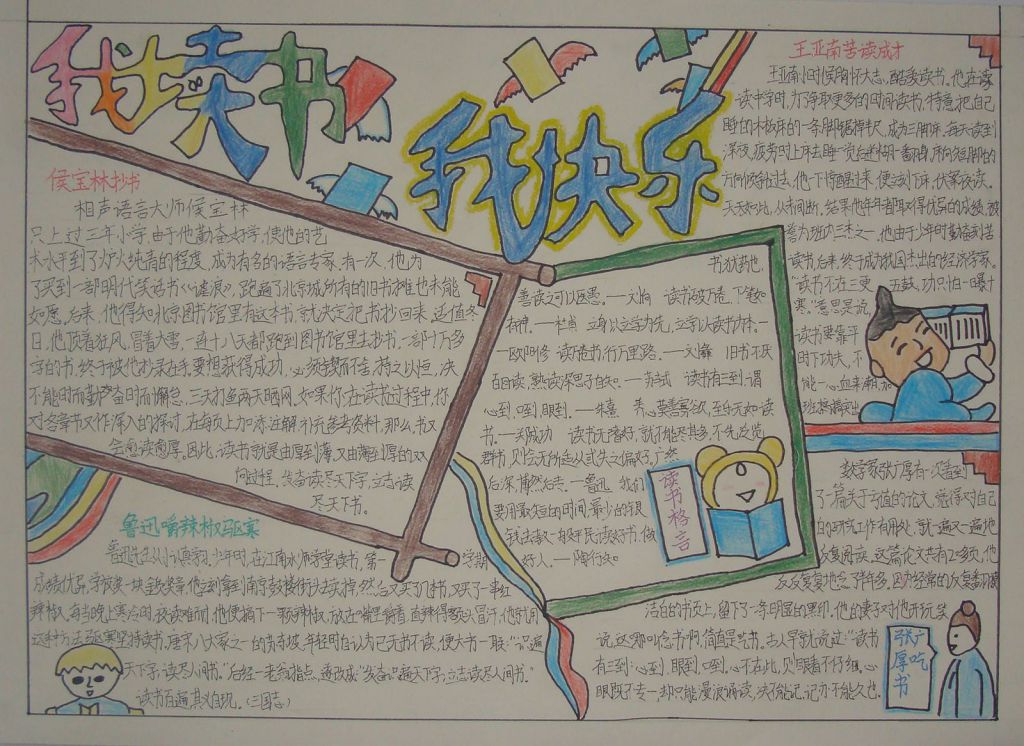 我士读书
我快乐
侯宝林抄书
相声语言大师侯宝林
只上过三年小学,由于他勤奋好学,使他的艺
术水平到了炉火纯青的程度,成为有名的语言专家.有一次,他为
了买到一部明代笑话书《谑浪》,跑遍了北京城所有的旧书摊也未能
如愿.后来,他得知北京图书馆里有这本书,就决定把书抄回来.适值冬
日,他顶着狂风,冒着大雪,一连十八天都跑到图书馆里去抄书,一部十万多
字的书,终于被他抄录到手.要想获得成功,必须锲而不舍,持之以恒,决
不能时而勤奋时而懈怠,三天打鱼两天晒网.如果你在读书过程中,你
对各章节又作深入的探讨,在每页上加添注解,补充参考资料,那么,书又
会愈读愈厚.因此,读书就是由厚到薄,又由薄到厚的双
向过程.
发奋读尽天下字,立志读
尽天下书.
鲁迅嚼辣椒驱寒
鲁迅先生从小认真学习.少年时,在江南水师学堂读书,第一学期
成绩优异,学校奖
一块金质奖章.他立刻拿到南京鼓楼街头卖掉,然后又买了几本书,又买了一串红
辣椒.每当晚上寒冷时,夜读难耐,他便摘下一颗辣椒,放在嘴里嚼着,直辣得额头冒汗.他就用
这种办法驱寒坚持读书.唐宋八大家之一的苏东坡,年轻时自认为已无书不读,便大书一联:"识遍
天下字,读尽人间书."后经一老翁指点,遂改成:"发奋识遍天下字,立志读尽人间书."
读书百遍,其义自现.(三国志)
书犹药也,
善读之可以医愚.——刘向 读书破万卷,下笔如
有神.——杜甫 立身以立学为先,立学以读书为本.——
欧阳修 读万卷书,行万里路.——刘彝 旧书不厌
百回读,熟读深思子自知.——苏轼 读书有三到,谓
心到,口到,眼到.——朱熹
书.——郑成功 读书无嗜好,就不能尽其多.不先泛览
群书,则会无所适从或失之偏好,广然
后深,博然后专.——鲁迅 我们
要用最短的时间,最少的银
钱去教一般平民读好书,做
好人.——陶行知
读书格言
王亚南苦读成才
王亚南小时候胸怀大志,酷爱读书.他在读
读中学时,为了争取更多的时间读书,特意把自己
睡的木板床的一条脚锯掉半尺,成为三脚床.每天读到
深夜,疲劳时上床去睡一觉后迷糊中一翻身,床向短脚的
方向倾斜过去,他一下惊醒过来,便立刻下床,伏案夜读.
天天如此,从未间断.结果他年年都取得优异的成绩,被
誉为班内三杰之一.他由于少年时勤奋刻苦
读书,后来,终于成为我国杰出的经济学家.
读书不在三更 五鼓,功只怕一曝十
寒.意思是说,
读书要靠平
时下功夫,不
能一心血来潮,加
数学家张广厚有一次看到
了一篇关于亏值的论文,觉得对自己
的研究工作有用处,就一遍又一遍地
反复阅读.这篇论文共有20多页,他
反反复复地念了半年多.因为经常的反复翻摸
洁白的书页上,留下了一条明显的黑印.他的妻子对他开玩笑
说,这哪叫念书啊,简直是吃书.古人早就说过:"读书
有三到:心到、眼到、口到.心不在此,则眼看不仔细.心
眼既不专一,却只能漫浪诵读,决不能记,记亦不能久也.
张广厚吃书